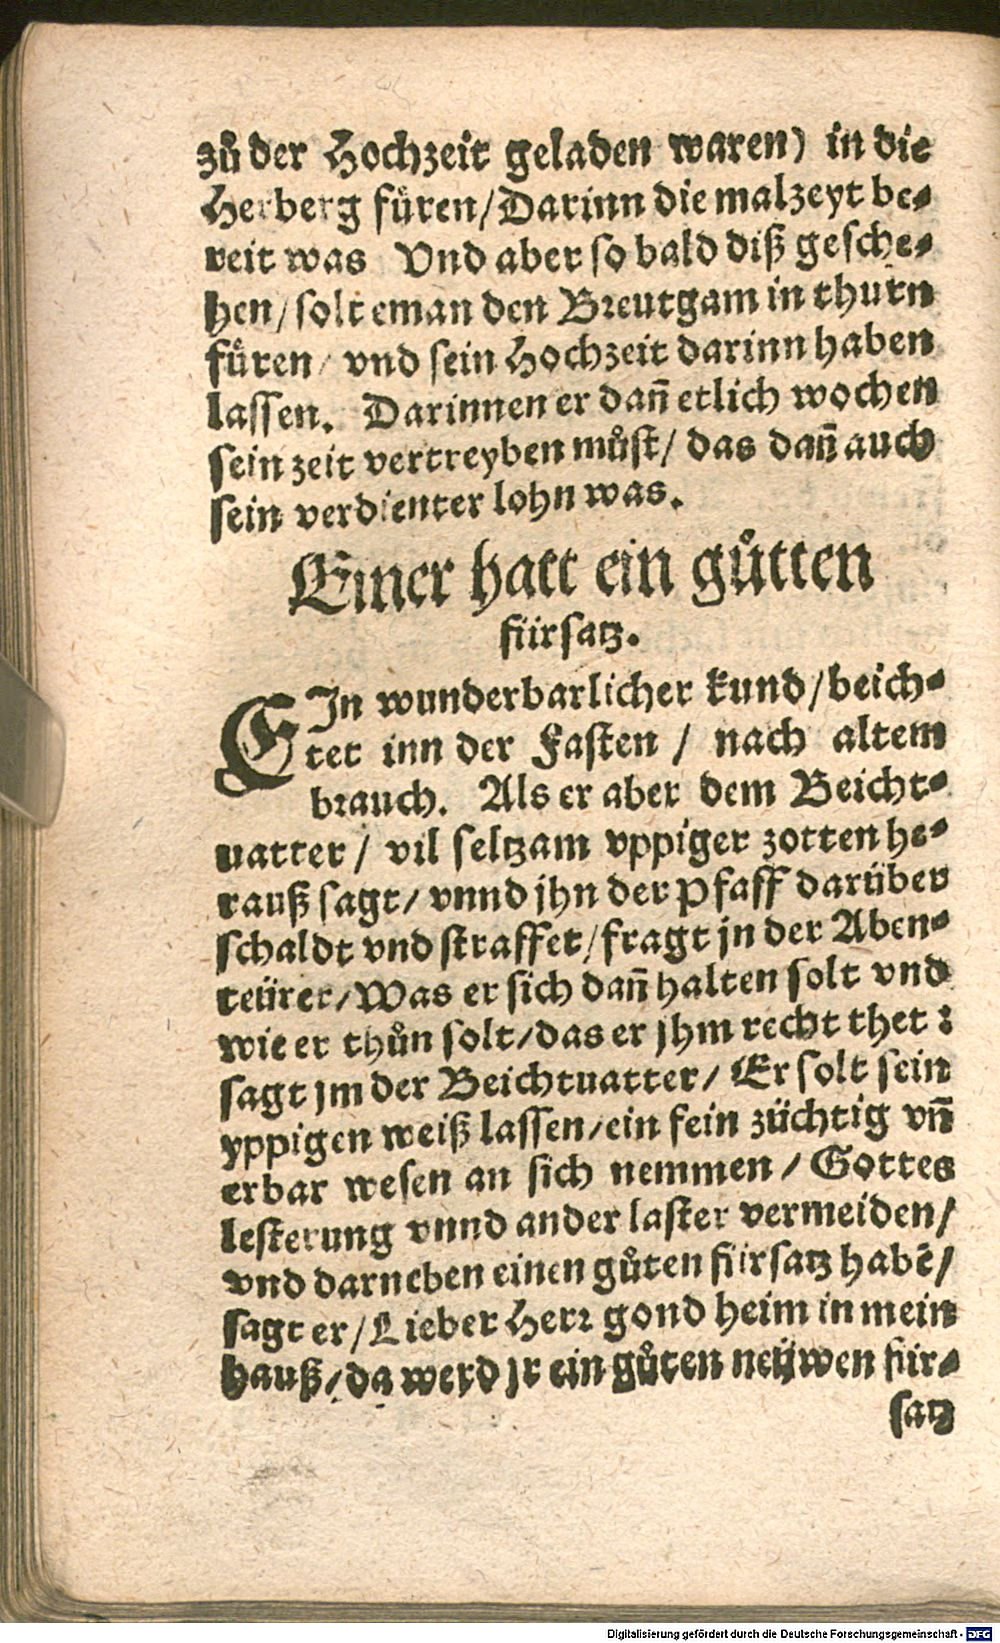 zů der Hochzeit geladen waren) in die
Herberg füren/Darinn die malzeyt be-
reit was Vnd aber so bald diß gesche-
hen/solt eman den Breutgam in thurn
füren/ vnd sein Hochzeit darinn haben
lassen. Darinnen er dañ etlich wochen
sein zeit vertreyben můst/ das dañ auch
sein verdienter lohn was.
Einer hatt ein gůtten
fürsatz.
EIn wunderbarlicher kund/beich-
tet inn der Fasten / nach altem
brauch. Als er aber dem Beicht-
uatter/ vil seltzam vppiger zotten he-
rauß sagt/ vnnd jhn der Pfaff darüber
schaldt vnd straffet/fragt jn der Aben-
teürer/Was er sich dañ halten solt vnd
wie er thůn solt/das er jhm recht thet:
sagt jm der Beichtuatter/ Er solt sein
yppigen weiß lassen/ein fein züchtig vñ
erbar wesen an sich nemmen / Gottes
lesterung vnnd ander laster vermeiden/
vnd darneben einen gůten fürsatz habẽ/
sagt er/Lieber Herr gond heim in mein
hauß/da werd jr ein gůten neüwen für-
satz
Digitalisierung gefördert durch die Deutsche Forschungsgemeinschaft - DFG